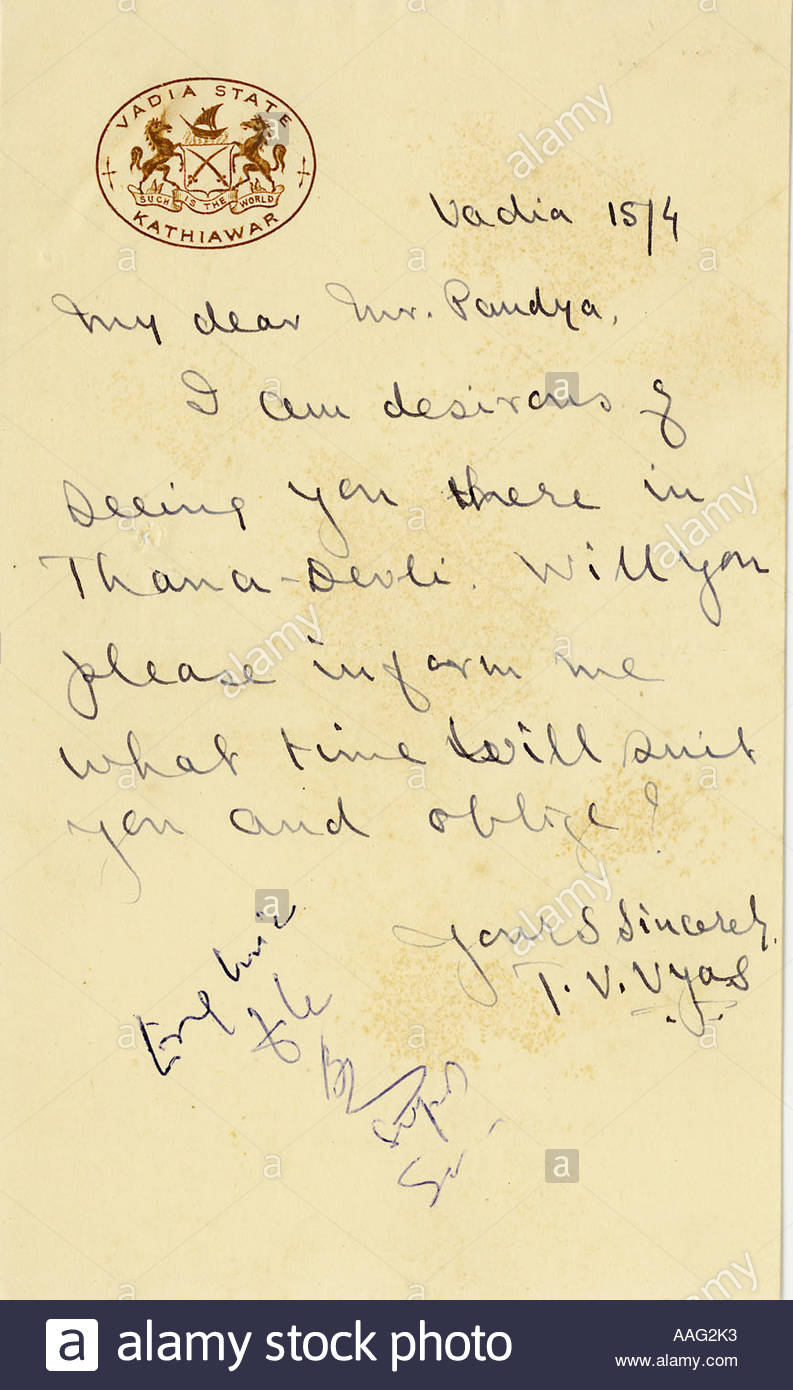 VADIA STATE
SUCH IS THE WORLD
KATHIAWAR
Vadia 15/4
My dear Mr. Pandya,
I am desirous of
seeing you there in
Thana-Devli. Will you
please inform me
what time will suit
you and oblige?
Yours Sincerely,
T. V. Vyas
alamy stock photo
AAG2K3
www.alamy.com